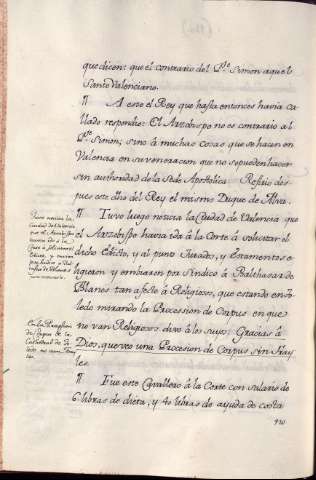 que dicen: que el contrario del P.e Simon aquel
Santo Valenciano.
¶ A esto el Rey que hasta entonces havia ca-
llado respondio: El Arzobispo no es contrario al
P.e Simon; sino à muchas cosas que se hacen en
Valencia en su veneracion que no se pueden hacer
sin authoridad de la Sede Apostolica. Refirio des-
pues este dho del Rey el mismo Duque de Alva.
¶ Tuvo luego noticia la Ciudad de Valencia que
el Arzobispo havia ido à la Corte à solicitar el
dicho Edicto, y al punto Jurados, y Estamentos e-
ligieron y embiaron por Sindico à Balthasar de
Blanes tan afecto à Religiosos, que estando en To-
ledo mirando la Procesion de Corpus en que
no van Religiosos dixo à los suyos; Gracias à
Dios, que veo una Procesion de Corpus sin Fray-
les.
¶ Fue este Cavallero à la Corte con salario de
6 libras de dieta, y 40 libras de ayuda de costa
Tuvo noticia la
Ciudad de Valencia
que el Arzobispo
havia ido à la
Corte à solicitar el
Edicto, y
En la Procession
de Corpus de la
Cathedral de To-
ledo no van Fray-
les.